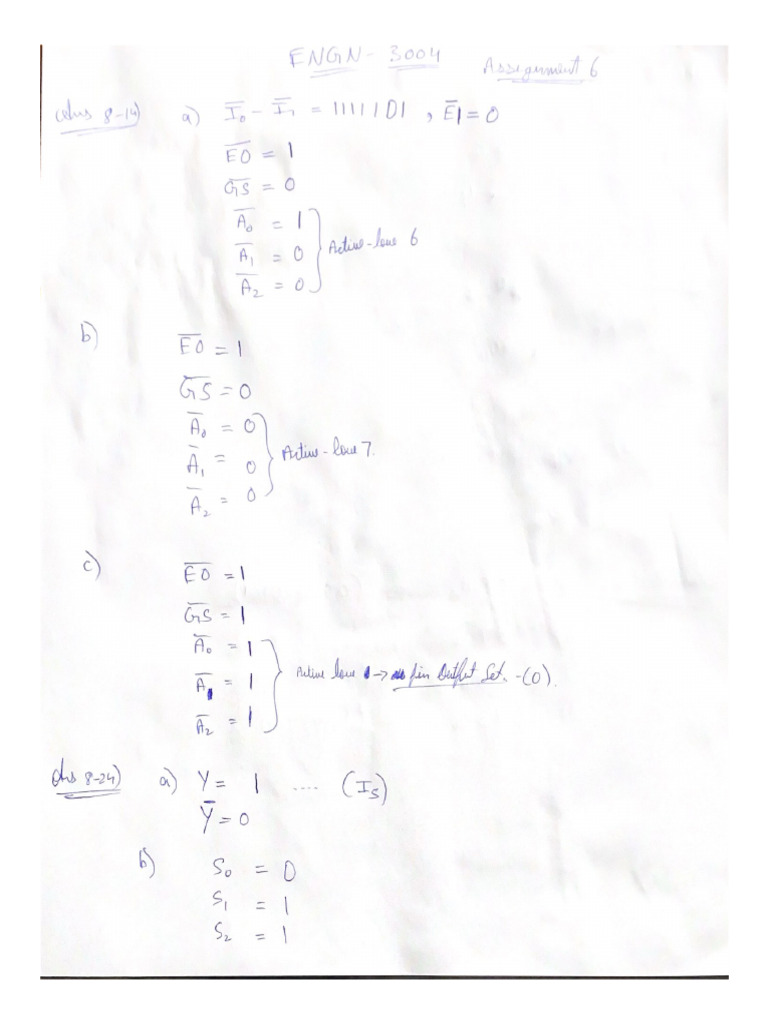 ENGN- 3004
Assignment 6
Ans 8-14) a) I̅₀ - I̅₇ = 11111101 , E̅I = 0
E̅O̅ = 1
G̅S̅ = 0
A̅₀ = 1
A̅₁ = 0 Active-low 6
A̅₂ = 0
b)
E̅O̅ = 1
G̅S̅ = 0
A̅₀ = 0
A̅₁ = 0 Active-low 7.
A̅₂ = 0
c)
E̅O̅ = 1
G̅S̅ = 1
A̅₀ = 1
A̅₁ = 1 Active low → pin Output Set. -(0).
A̅₂ = 1
Ans 8-24) a) Y = 1 .... (I₅)
Y̅ = 0
b) S₀ = 0
S₁ = 1
S₂ = 1